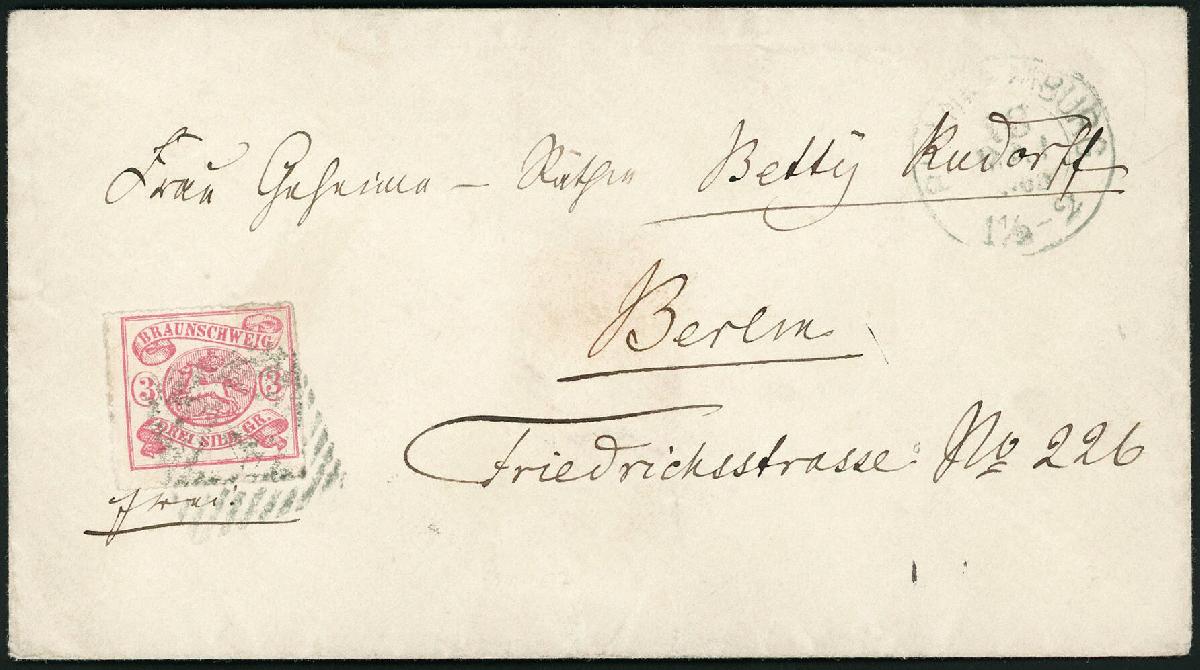 Frau Geheime - Räthin Betty Rudorff
Berlin
Friedrichsstrasse No 226
BRAUNSCHWEIG
3 3
DREI SILB. GR.
frei.
1½-2